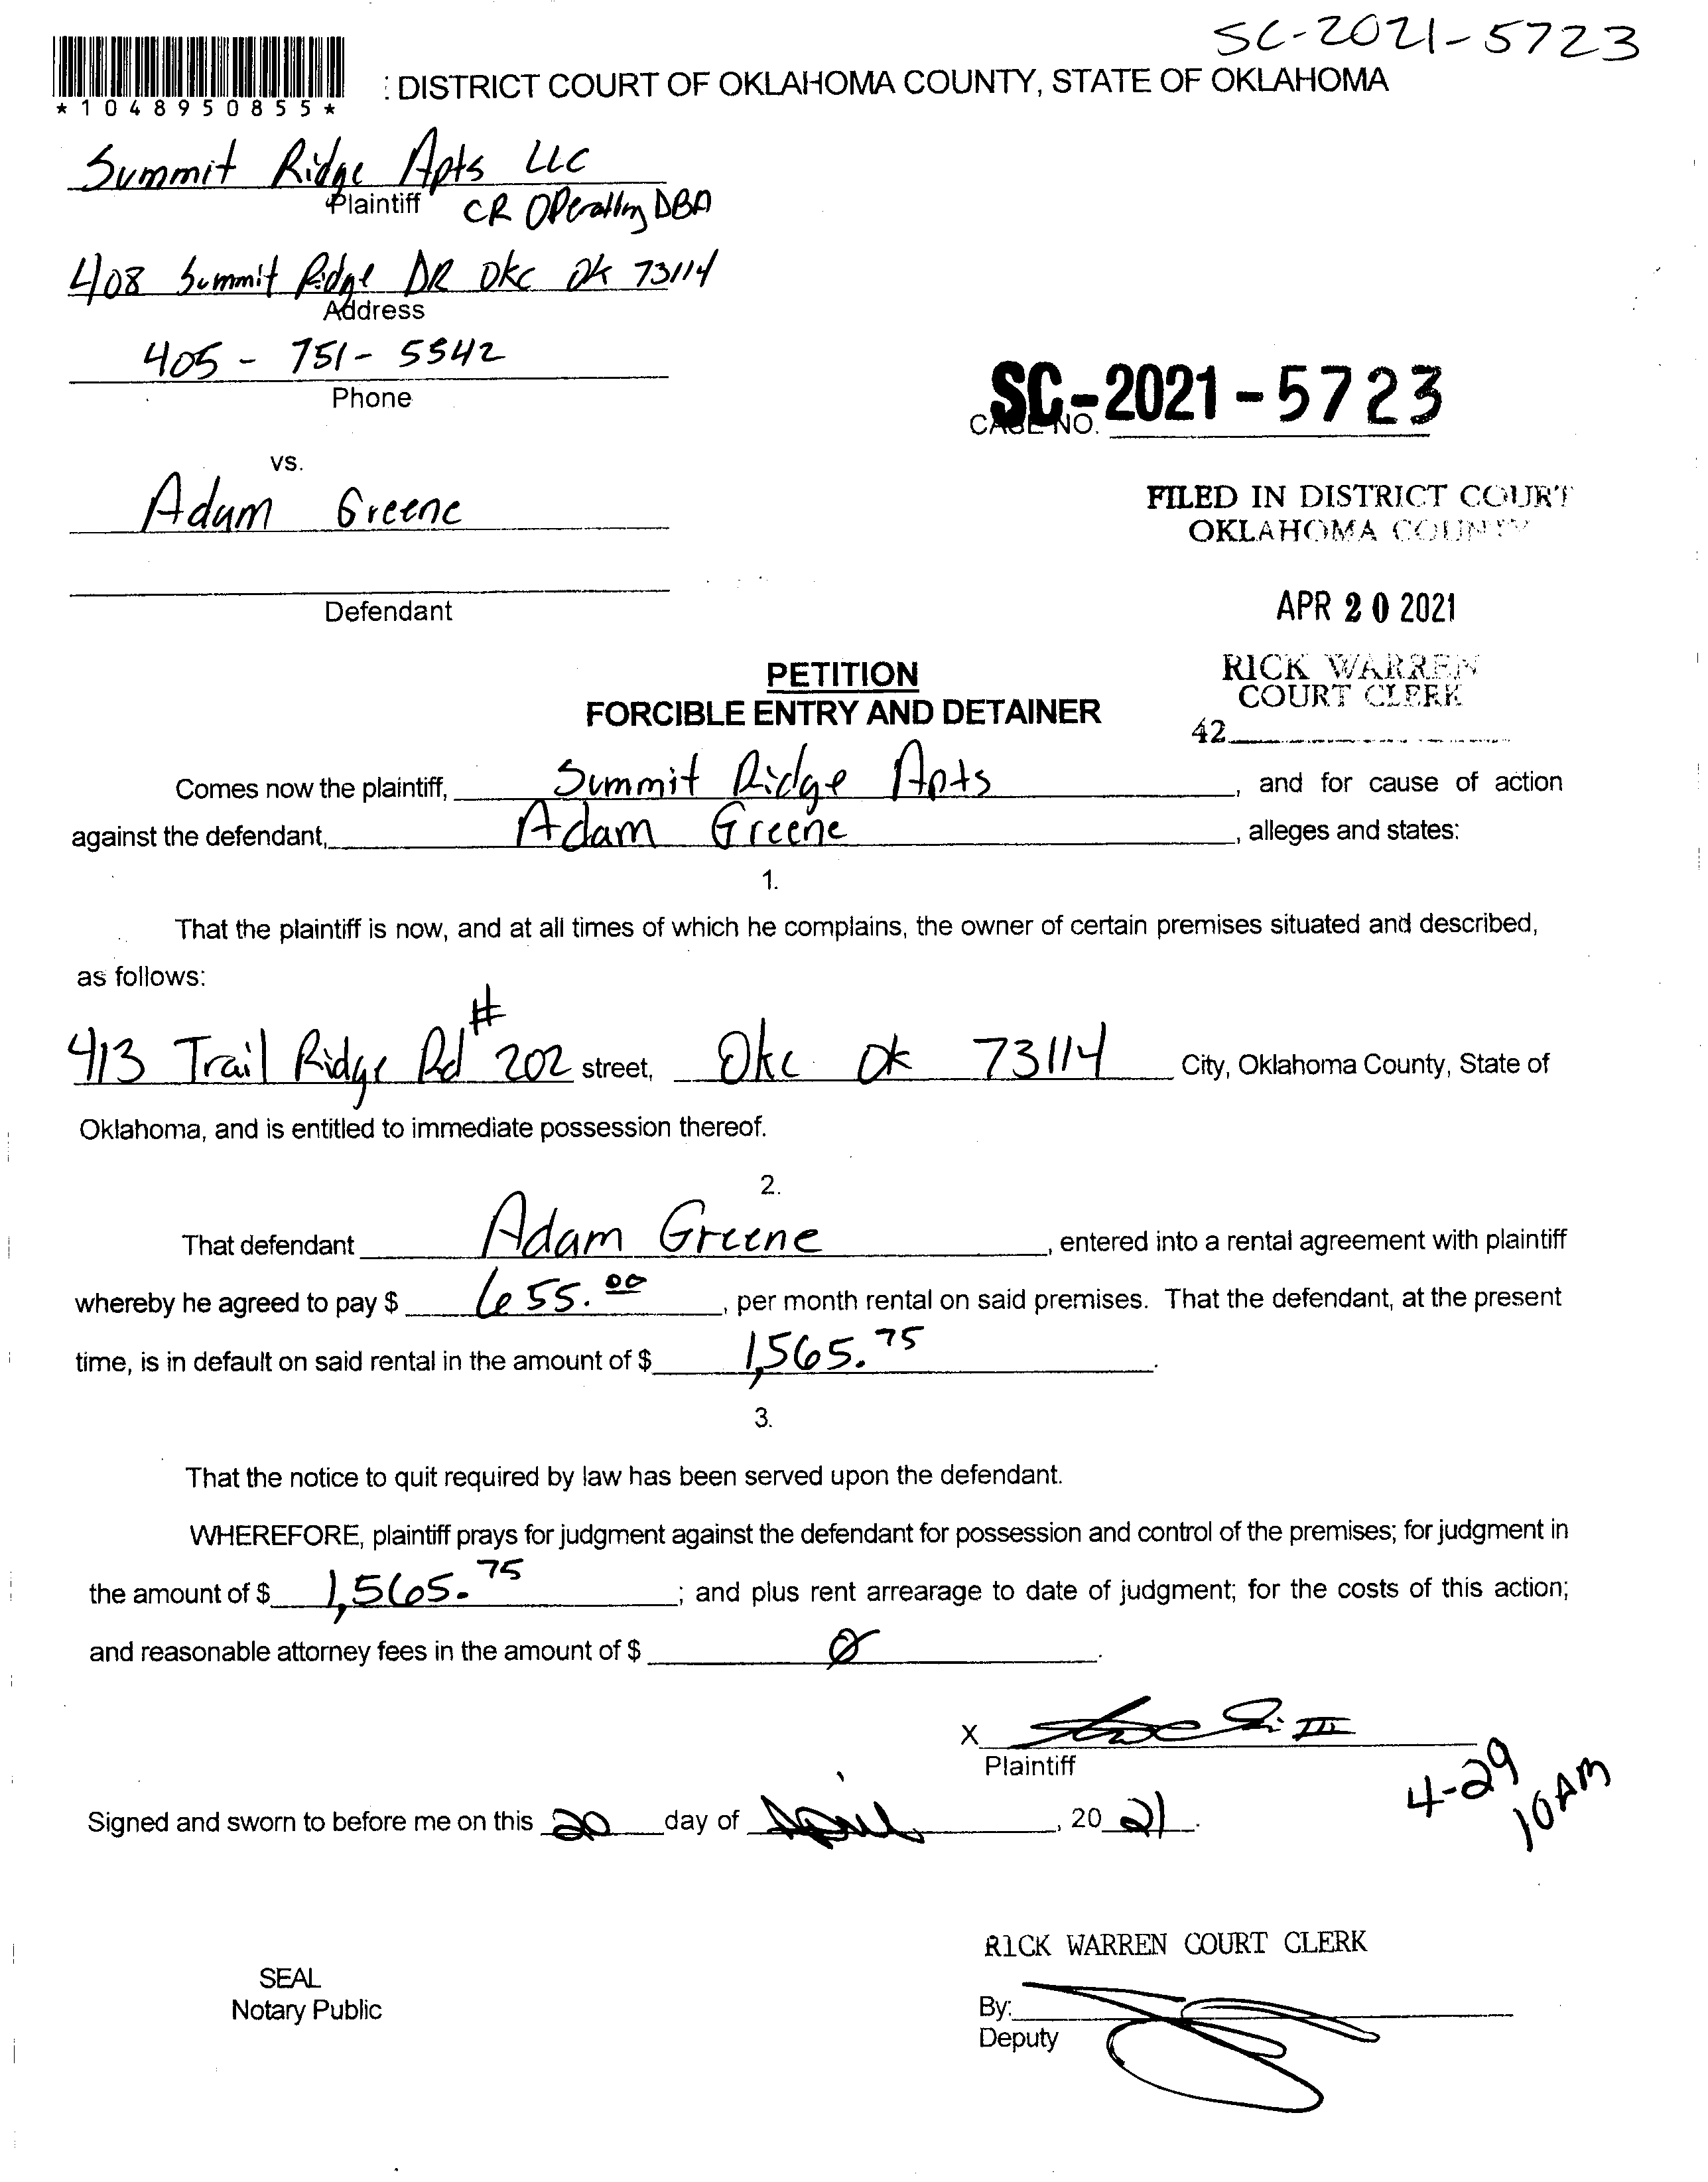 SC-2021-5723
*1048950855*
: DISTRICT COURT OF OKLAHOMA COUNTY, STATE OF OKLAHOMA
Summit Ridge Apts LLC
Plaintiff CR Operating DBA
408 Summit Ridge DR Okc Ok 73114
Address
405 - 751 - 5542
Phone
SC-2021-5723
CASE NO.
vs.
Adam Greene
FILED IN DISTRICT COURT
OKLAHOMA COUNTY
Defendant
APR 20 2021
RICK WARREN
COURT CLERK
42
PETITION
FORCIBLE ENTRY AND DETAINER
Comes now the plaintiff, Summit Ridge Apts, and for cause of action
against the defendant, Adam Greene, alleges and states:
1.
That the plaintiff is now, and at all times of which he complains, the owner of certain premises situated and described,
as follows:
413 Trail Ridge Rd # 202 street, Okc Ok 73114 City, Oklahoma County, State of
Oklahoma, and is entitled to immediate possession thereof.
2.
That defendant Adam Greene, entered into a rental agreement with plaintiff
whereby he agreed to pay $ 655.00, per month rental on said premises. That the defendant, at the present
time, is in default on said rental in the amount of $ 1,565.75.
3.
That the notice to quit required by law has been served upon the defendant.
WHEREFORE, plaintiff prays for judgment against the defendant for possession and control of the premises; for judgment in
the amount of $ 1,565.75; and plus rent arrearage to date of judgment; for the costs of this action;
and reasonable attorney fees in the amount of $ Ø.
X III
Plaintiff
4-29
10AM
Signed and sworn to before me on this 20 day of April, 20 21.
RICK WARREN COURT CLERK
SEAL
Notary Public
By:
Deputy